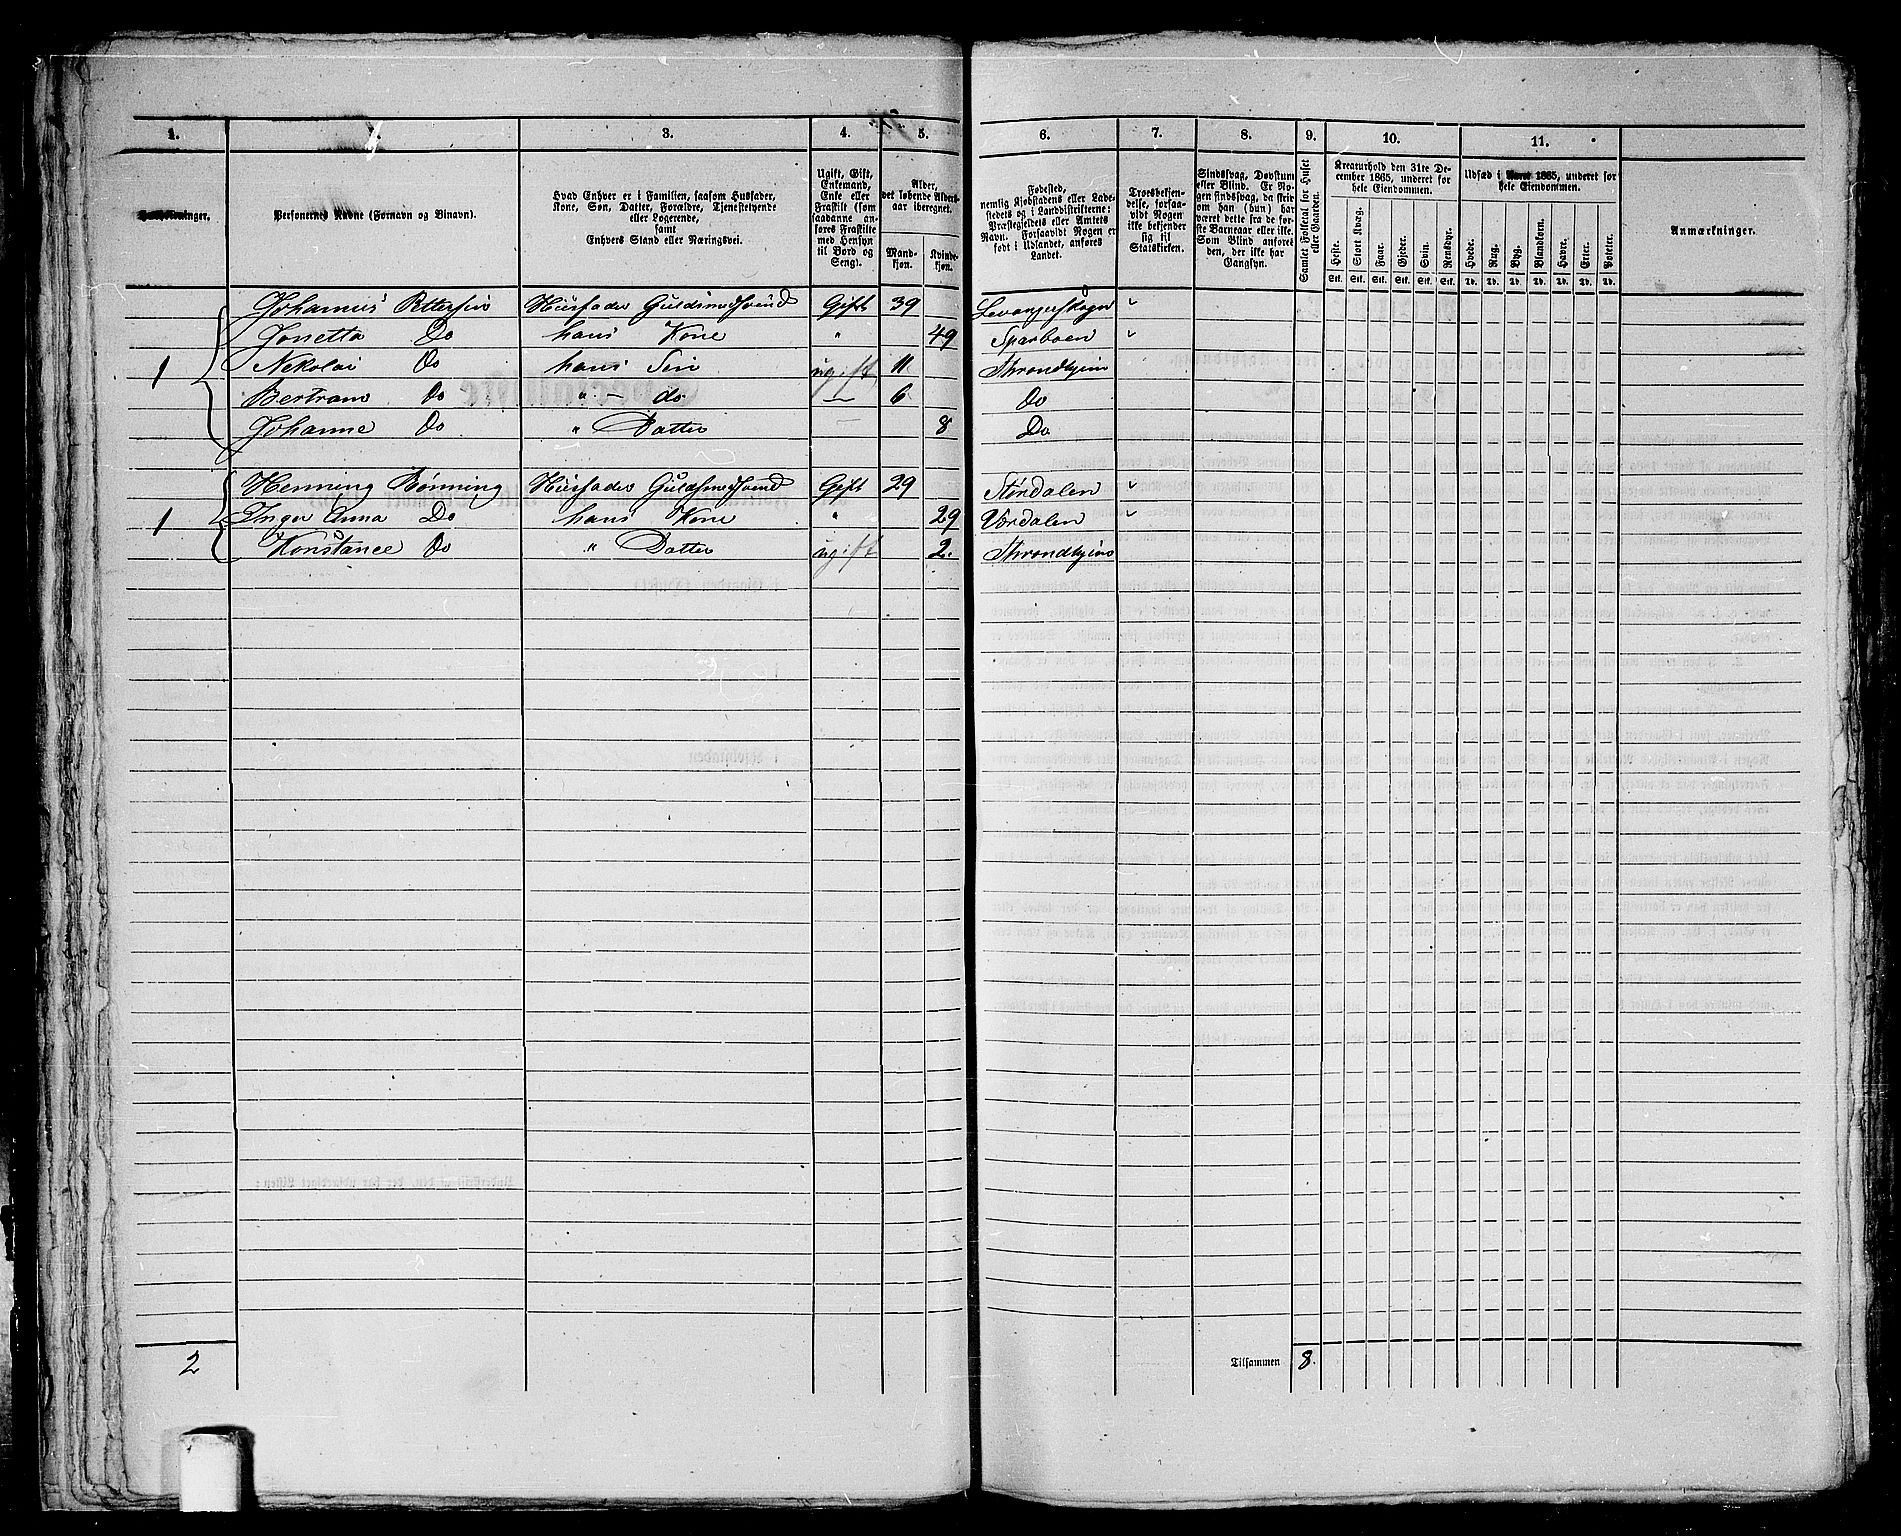 1. 3. 4. 5. 6. 7. 8. 9. 10. 11.
Personernes Navne (Fornavn og Binavn).
Hvad Enhver er i Familien, saasom Husfader,
Kone, Søn, Datter, Forældre, Tjenestetyende
eller Logerende,
samt
Enhvers Stand eller Næringsvei.
Ugift, Gift,
Enkemand,
Enke eller
Fraskilt (som
saadanne an-
føres Fraskilte
med Hensyn
til Bord og
Seng).
Alder,
det løbende Alders-
aar iberegnet.
Mand-
kjøn.
Kvinde-
kjøn.
Fødested,
nemlig Kjøbstadens eller Lade-
stedets og i Landdistrikterne:
Præstegjeldets eller Amtets
Navn. Forsaavidt Nogen er
født i Udlandet, anføres
Landet.
Troesbekjen-
delse, forsaa-
vidt Nogen
ikke bekjender
sig til
Statskirken.
Sindssvag, Døvstum
eller Blind. Er No-
gen sindssvag, da skriv
om han (hun) har
været dette fra de før-
ste Barneaar eller ikke.
Som Blind anføres
den, der ikke har
Gangsyn.
Samlet Folketal for Huset
eller Gaarden.
Kreaturhold den 31te De-
cember 1865, underet for
hele Eiendommen.
Heste. Stort Kvæg. Faar. Gjeder. Svin. Rensdyr.
Stk. Stk. Stk. Stk. Stk. Stk.
Udsæd i Aaret 1865, underet for
hele Eiendommen.
Hvede. Rug. Byg. Blandkorn. Havre. Erter. Poteter.
Td. Td. Td. Td. Td. Td. Td.
Anmærkninger.
Johannes Pettersen Huusfader Guldsmedsvend Gift 39 Levangerskogn "
Jonetta Do hans Kone " 49 Sparboen "
1 Nekolai Do hans Sön ugift 11 Throndhjem
Bertram Do " - do — 6 Do
Johanne Do " Datter — 8 Do
Henning Bönning Huusfader Guldsmedsvend Gift 29 Stördalen "
1 Inger Anna Do hans Kone " 29 Værdalen "
Konstance Do " Datter ugift 2. Throndhjem
2 Tilsammen 8.